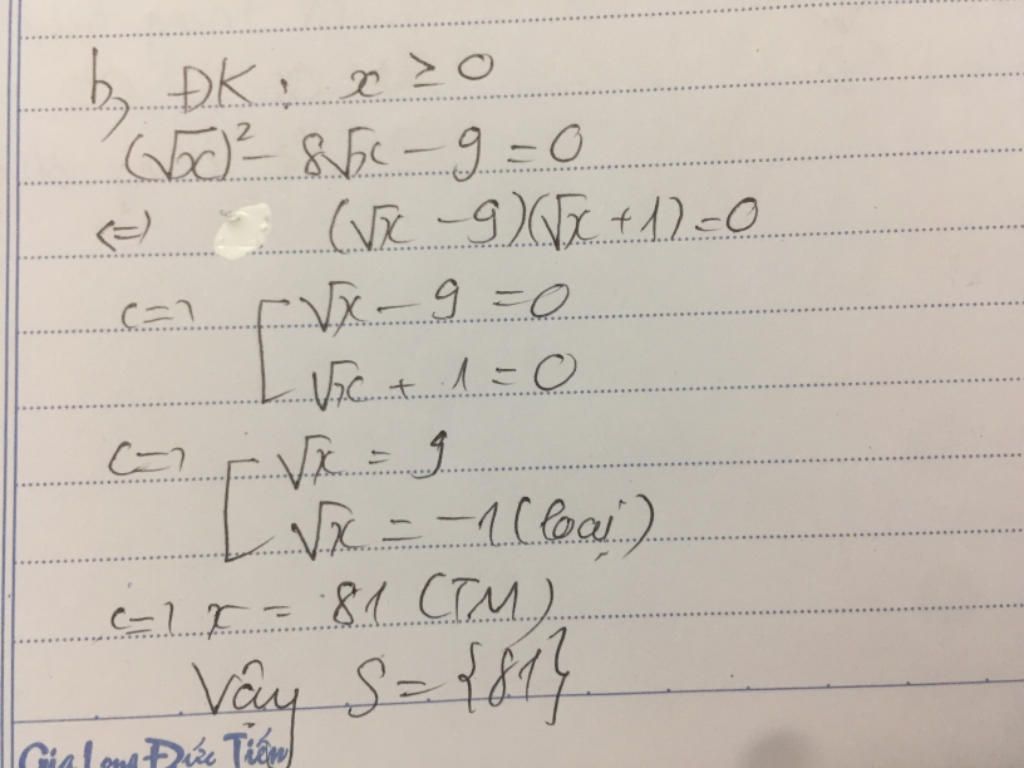 b, ĐK: x ≥ 0
(√x)² - 8√x - 9 = 0
<=> (√x - 9)(√x + 1) = 0
<=> [ √x - 9 = 0
√x + 1 = 0
<=> [ √x = 9
√x = -1 (loại)
<=> x = 81 (TM)
Vậy S = {81}
Gia Long Đức Tiến